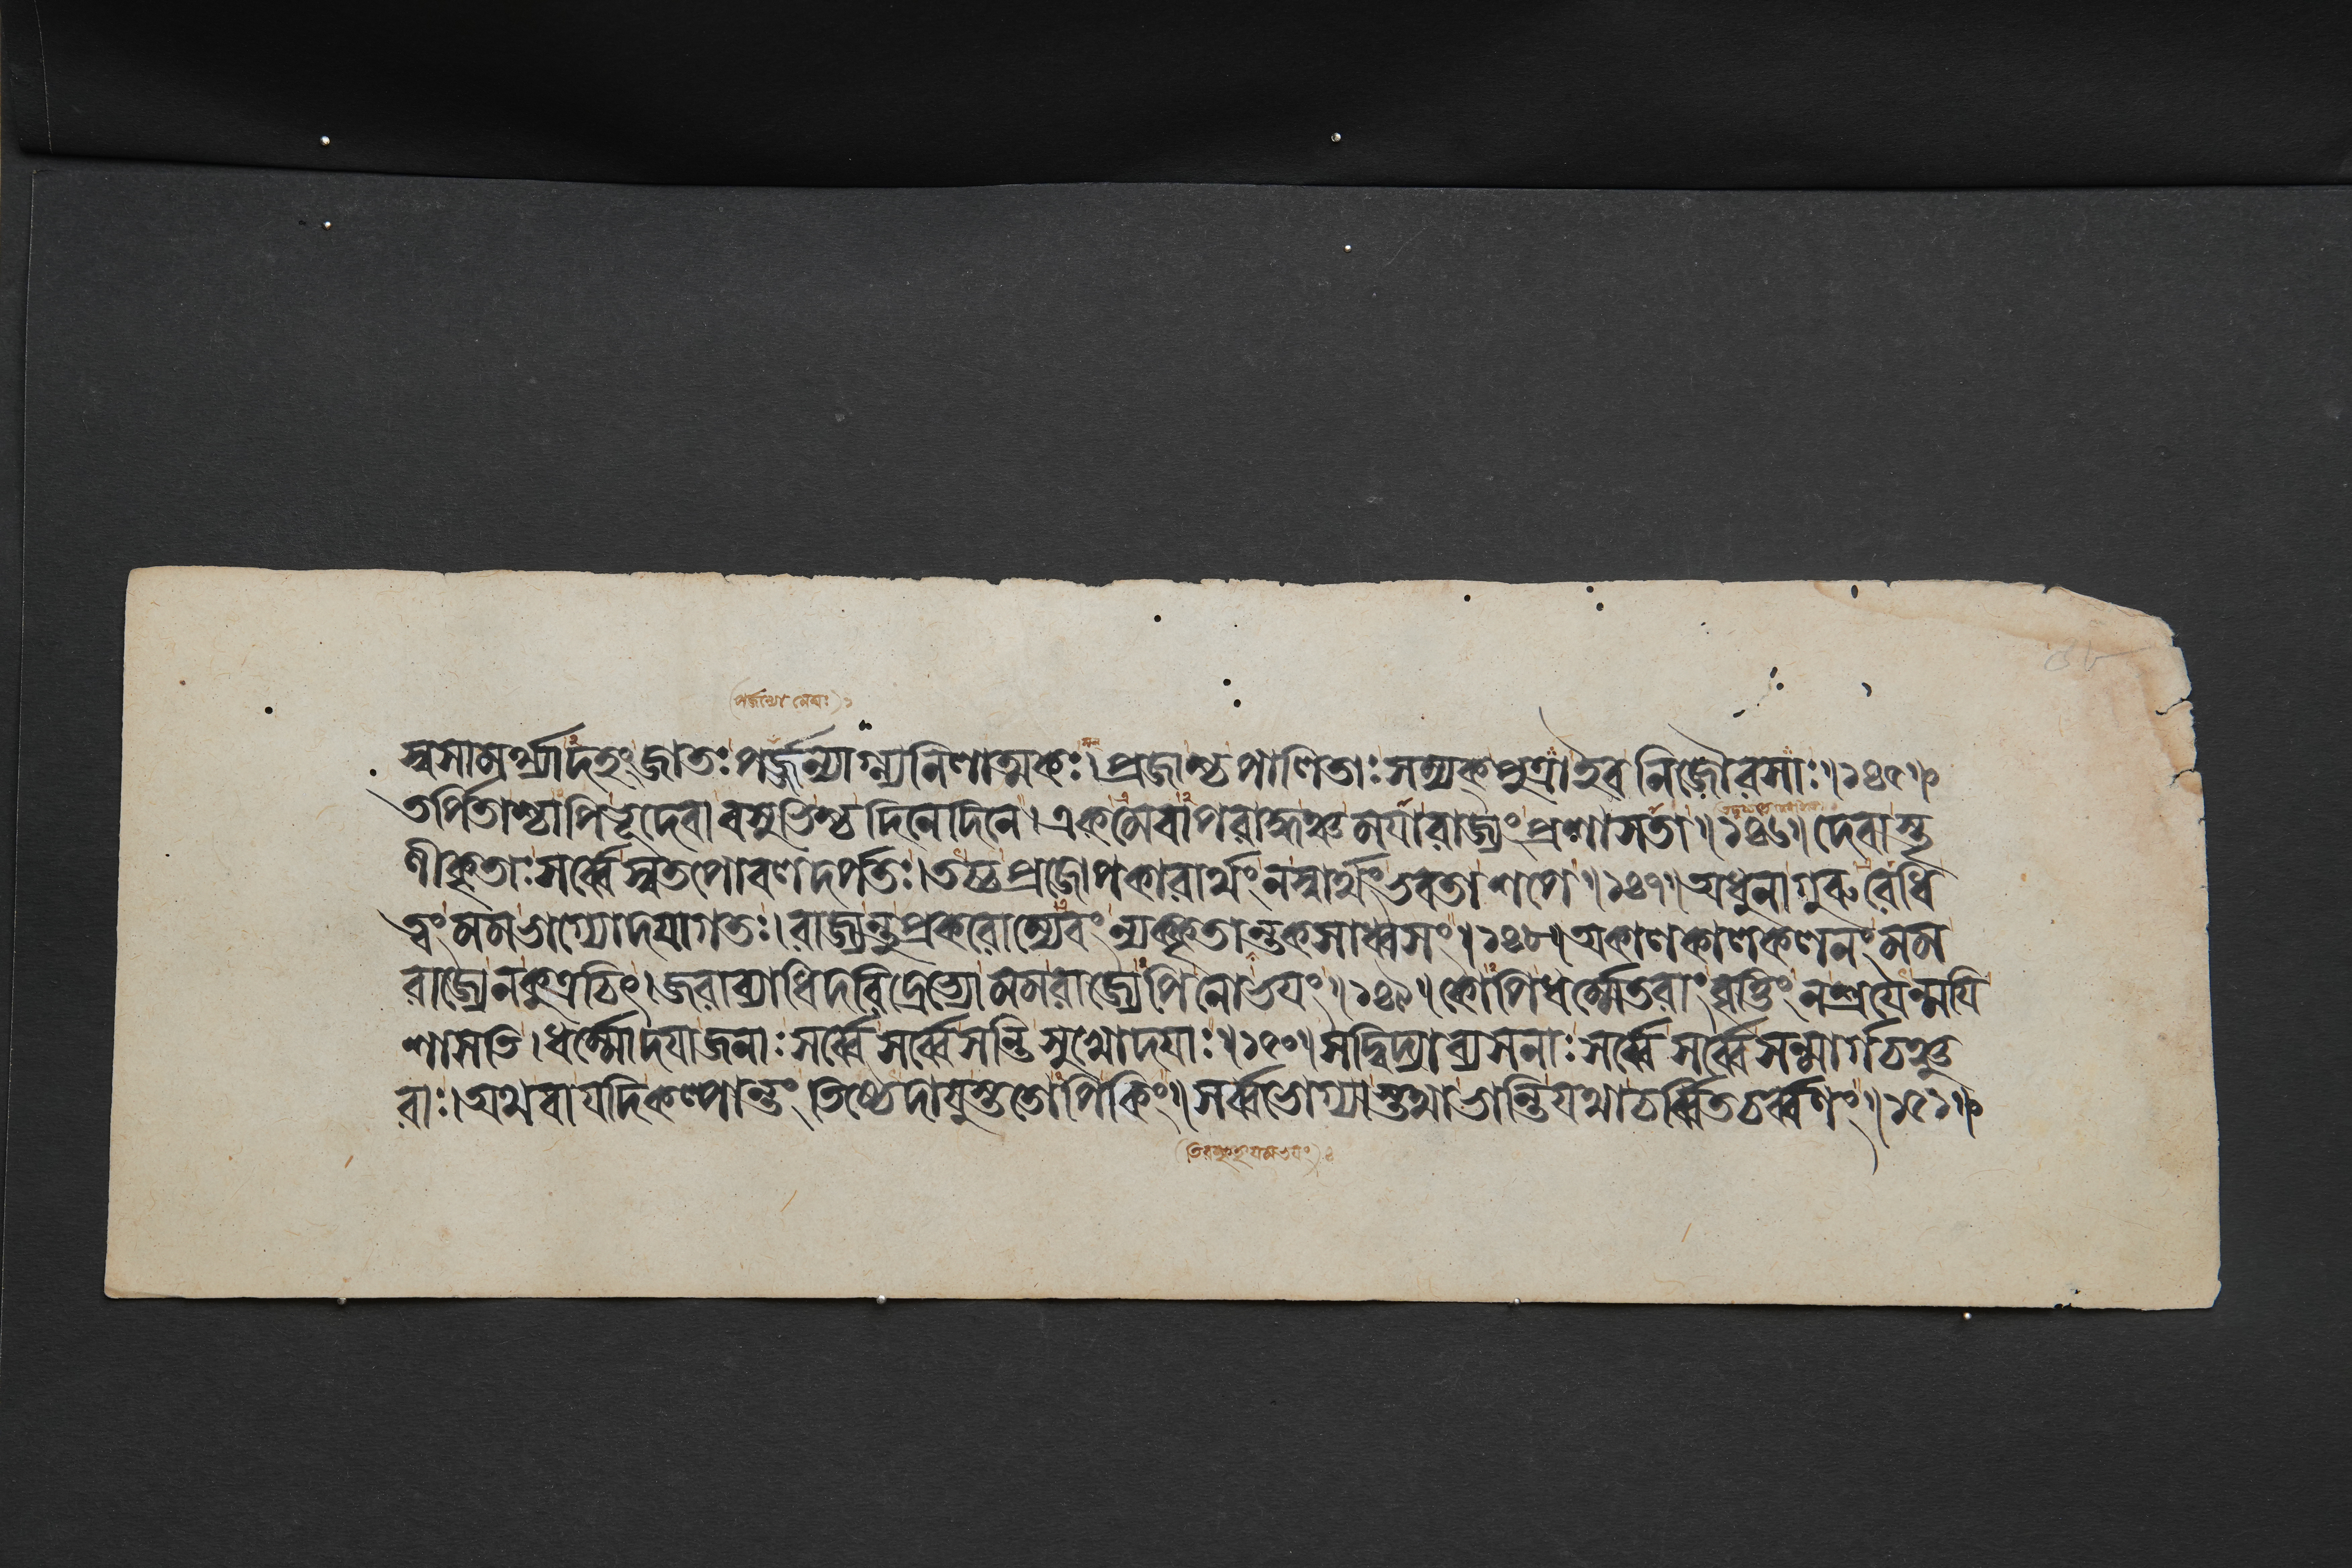 স্বসামর্থ্যাদহং জাতঃ পর্জ্জন্যাগ্ন্যনিলাত্মকঃ। প্রজাশ্চ পালিতাঃ সম্যক্ পুত্রা ইব নিজৌরসাঃ॥১৪৫॥
তর্পিতাশ্চাপি ভূদেবা বসুভিশ্চ দিনে দিনে। একমেবাপরাদ্ধঞ্চ ময়া রাজ্যং প্রশাসতা॥১৪৬॥ দেবাস্তৃ
ণীকৃতাঃ সর্ব্বে স্বতপোবলদর্পতঃ। তচ্চ প্রজোপকারার্থং ন স্বার্থং ভবতা শপে॥১৪৭॥ অধুনা গুরুরেধি
ত্বং মম ভাগ্যোদয়াগতঃ। রাজ্যন্তু প্রকরোম্যেবং ন্যক্কৃতান্তকসাধ্বসং॥১৪৮॥ অকালকালকলনং মম
রাজ্যে ন কুত্রচিৎ। জরাব্যাধিদরিদ্রেভ্যো মম রাজ্যেপি নো ভয়ং॥১৪৯॥ কোপি ধর্ম্মেতরাং বৃত্তিং ন শ্রয়েন্ময়ি
শাসতি। ধর্ম্মোদয়া জনাঃ সর্ব্বে সর্ব্বে সন্তি সুখোদয়াঃ॥১৫০॥ সদ্বিদ্যাব্যসনাঃ সর্ব্বে সর্ব্বে সন্মার্গচঞ্চু
রাঃ। অথবা যদি কল্পান্তং তিষ্ঠেদায়ুস্ততোপি কিং॥ সর্ব্বভোগ্যাস্তথা ভান্তি যথা চর্ব্বিতচর্ব্বণং॥১৫১॥